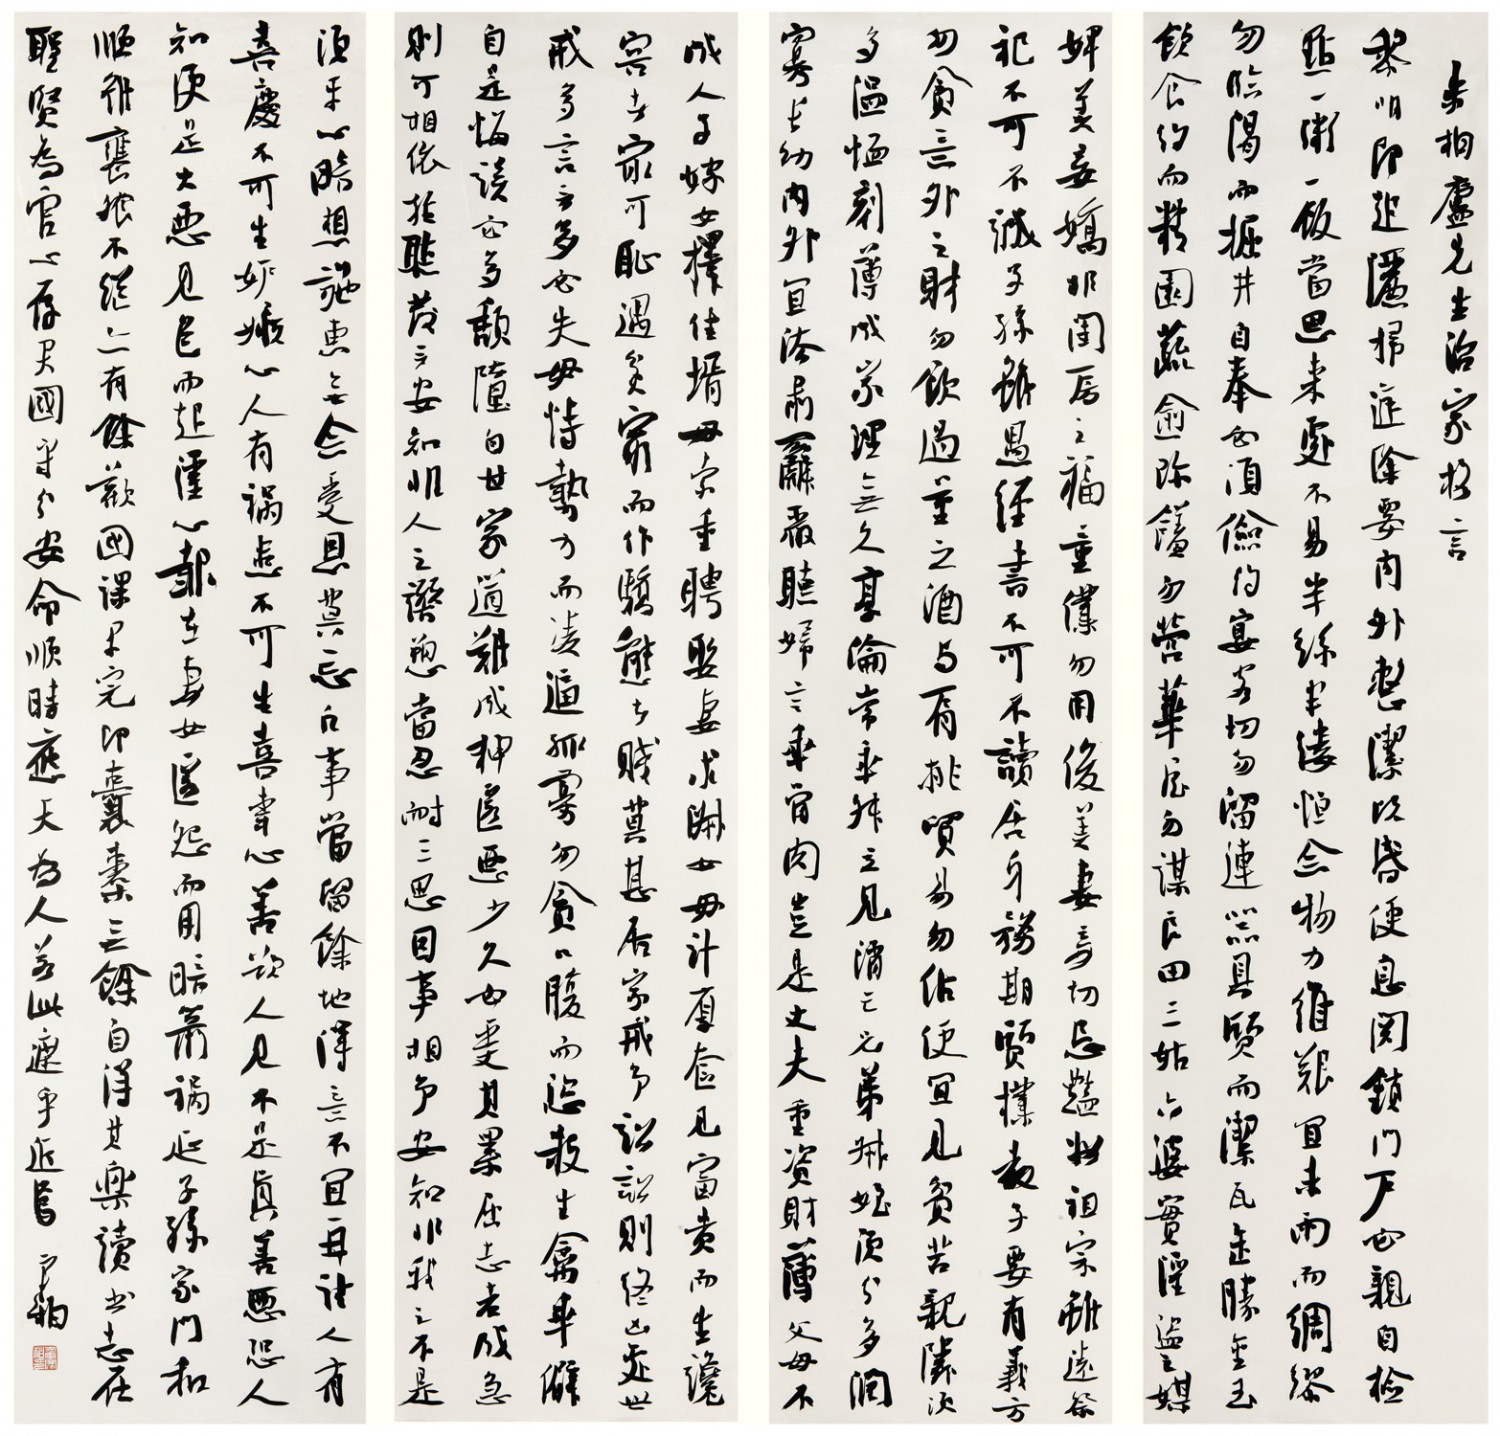 朱柏廬先生治家格言
黎明即起灑掃庭除要內外整潔既昏便息關鎖門戶必親自檢
點一粥一飯當思來處不易半絲半縷恒念物力維艱宜未雨而綢繆
勿臨渴而掘井自奉必須儉約宴客切勿留連器具質而潔瓦缶勝金玉
飲食約而精園蔬愈珍饈勿營華屋勿謀良田三姑六婆實淫盜之媒
婢美妾嬌非閨房之福童僕勿用俊美妻妾切忌豔妝祖宗雖遠祭
祀不可不誠子孫雖愚經書不可不讀居身務期質樸教子要有義方
勿貪意外之財勿飲過量之酒與肩挑貿易勿佔便宜見貧苦親鄰須
多溫恤刻薄成家理無久享倫常乖舛立見消亡兄弟叔姪須分多潤
寡長幼內外宜法肅辭嚴聽婦言乖骨肉豈是丈夫重資財薄父母不
成人子嫁女擇佳壻毋索重聘娶妻求淑女毋計厚奩見富貴而生讒
容者最可恥遇貧窮而作驕態者賤莫甚居家戒爭訟訟則終凶處世
戒多言言多必失毋恃勢力而凌逼孤寡勿貪口腹而恣殺生禽乖僻
自是悔誤必多頹隳自甘家道難成狎匿惡少久必受其累屈志老成急
則可相依輕聽發言安知非人之譖愬當忍耐三思因事相爭安知非我之不是
須平心暗想施惠無念受恩莫忘凡事當留餘地得意不宜再往人有
喜慶不可生妒嫉心人有禍患不可生喜幸心善欲人見不是真善惡恐人
知便是大惡見色而起淫心報在妻女匿怨而用暗箭禍延子孫家門和
順雖饔飧不繼亦有餘歡國課早完即囊橐無餘自得其樂讀書志在
聖賢為官心存君國守分安命順時應天為人若此庶乎近焉